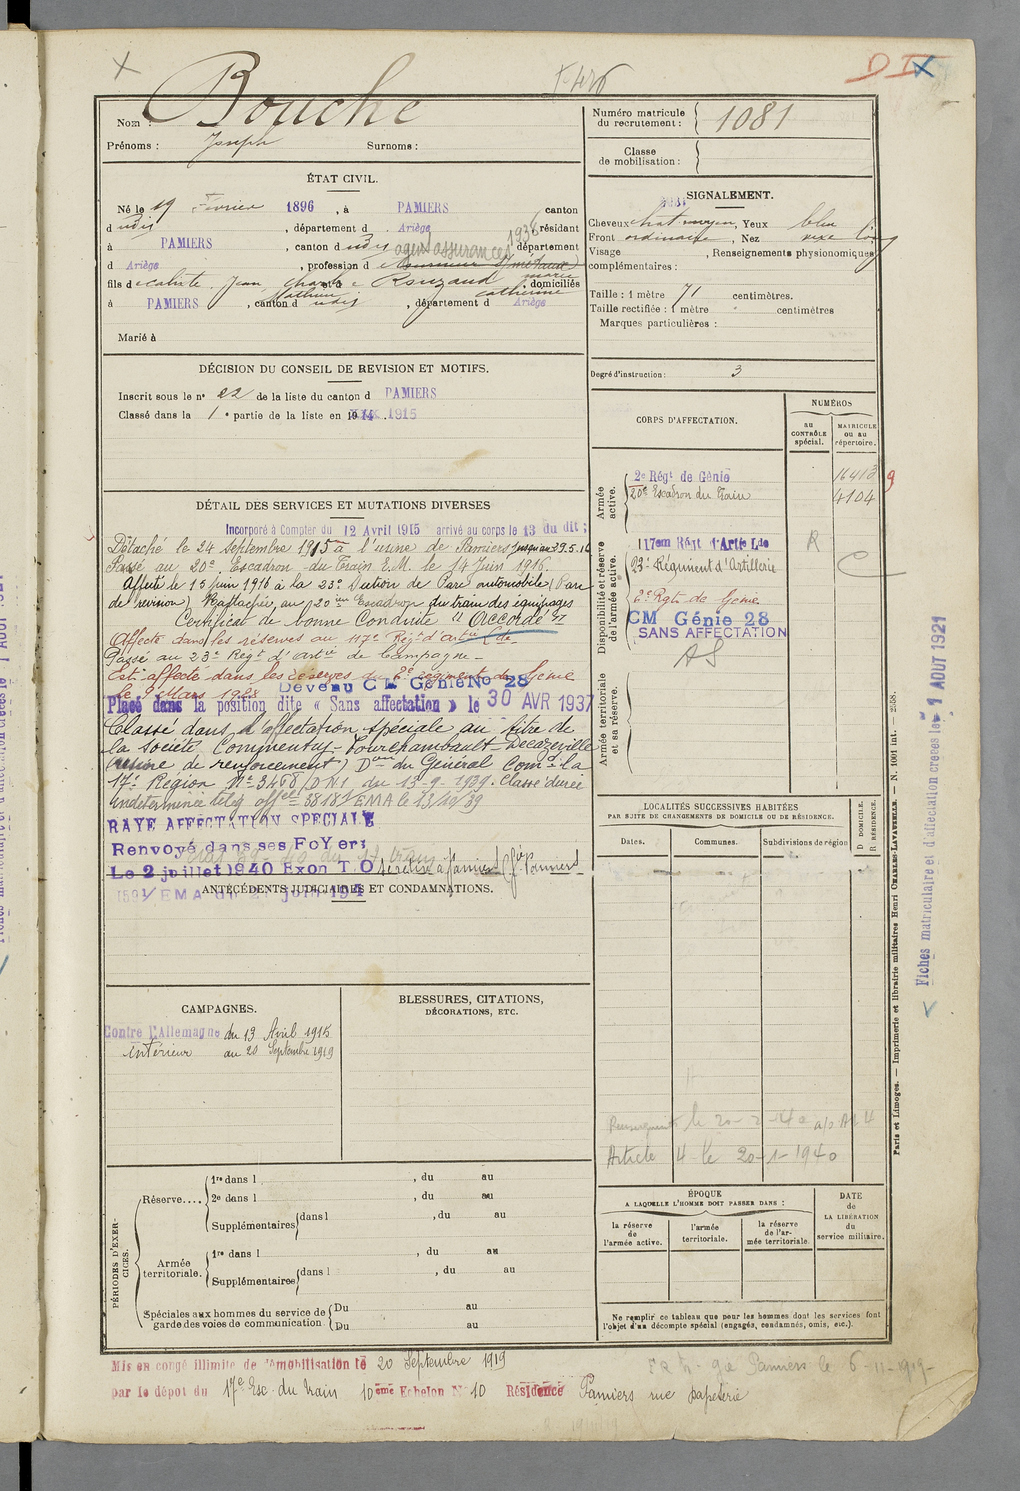 Bouche
Nom :
Prénoms : Joseph Surnoms :
ÉTAT CIVIL.
Né le 19 Février 1896, à PAMIERS canton
dudis, département d Ariège résidant
à PAMIERS, canton d udis agent assurances 1936 département
d Ariège, profession d
fils de Jean et de Rouzaud marie catherine domiciliés
à PAMIERS, canton d udis, département d Ariège
Marié à
DÉCISION DU CONSEIL DE REVISION ET MOTIFS.
Inscrit sous le n° 22 de la liste du canton d PAMIERS
Classé dans la 1e partie de la liste en 1914. 1915
DÉTAIL DES SERVICES ET MUTATIONS DIVERSES
Incorporé à Compter du 12 Avril 1915 arrivé au corps le 13 du dit ;
Détaché le 24 septembre 1915 à l'usine de Pamiers jusqu'au 29.5.16
Passé au 20e Escadron du Train E.M. le 14 Juin 1916.
Affecté le 15 Juin 1916 à la 23e Section de Parc automobile (Parc
de revision) Rattachée au 20ième Escadron du train des équipages
Certificat de bonne Conduite "Accordé"
Affecté dans les réserves au 117e Régt d'artie Lde
Passé au 23e Régt d'artie de Campagne -
Est affecté dans les réserves du 2e régiment de Génie
le 9 Mars 1928 Devenu C M. Génie No 28
Placé dans la position dite « Sans affectation » le 30 AVR 1937
Classé dans l'affectation spéciale au titre de
la société Commentry-Fourchambault-Decazeville
(usine de renforcement) Don du Général Comdt la
17e Région N° 3468/DN1 du 13-9-1939. Classé durée
indéterminée 13/10/39
RAYE AFFECTATION SPECIALE
Renvoyé dans ses FoYers
Le 2 juillet 1940 Exon T.O. se retire à Pamiers
ANTÉCÉDENTS JUDICIAIRES ET CONDAMNATIONS.
CAMPAGNES.
Contre l'Allemagne du 13 Avril 1915
intérieur au 20 Septembre 1919
BLESSURES, CITATIONS,
DÉCORATIONS, ETC.
PÉRIODES D'EXERCICES.
Réserve....
1re dans l , du au
2e dans l , du au
Supplémentaires dans l , du au
Armée territoriale.
1re dans l , du au
Supplémentaires dans l , du au
Spéciales aux hommes du service de garde des voies de communication
Du au
Du au
Mis en congé illimité de démobilisation le 20 Septembre 1919
par le dépôt du 17e Esc. du train 10ème Echelon N° 10 Résidence Pamiers rue papeterie
Numéro matricule
du recrutement : 1081
Classe
de mobilisation :
SIGNALEMENT.
Cheveux chat. moyen, Yeux bleu
Front ordinaire, Nez long
Visage , Renseignements physionomiques
complémentaires :
Taille : 1 mètre 71 centimètres.
Taille rectifiée : 1 mètre centimètres
Marques particulières :
Degré d'instruction : 3
CORPS D'AFFECTATION.
NUMÉROS
au CONTRÔLE spécial.
MATRICULE ou au répertoire.
Armée active.
2e Régt de Génie 16413
20e Escadron du Train 4104
Disponibilité et réserve de l'armée active.
117em Rgnt d'Artie Lde R
23e Régiment d'Artillerie
2e Rgt de Génie
CM Génie 28
SANS AFFECTATION
AS
Armée territoriale et sa réserve.
LOCALITÉS SUCCESSIVES HABITÉES
PAR SUITE DE CHANGEMENTS DE DOMICILE OU DE RÉSIDENCE.
Dates. Communes. Subdivisions de région
D DOMICILE.
R RÉSIDENCE.
Article 4 le 20-1-1940
ÉPOQUE
A LAQUELLE L'HOMME DOIT PASSER DANS :
la réserve de l'armée active.
l'armée territoriale.
la réserve de l'armée territoriale.
DATE
de
LA LIBÉRATION
du
service militaire.
Ne remplir ce tableau que pour les hommes dont les services font
l'objet d'un décompte spécial (engagés, condamnés, omis, etc.).
Paris et Limoges. — Imprimerie et librairie militaires Henri CHARLES-LAVAUZELLE. — N. 1001 int. — 2558.
Fiches matriculaire et d'affectation créées le 1 AOUT 1921